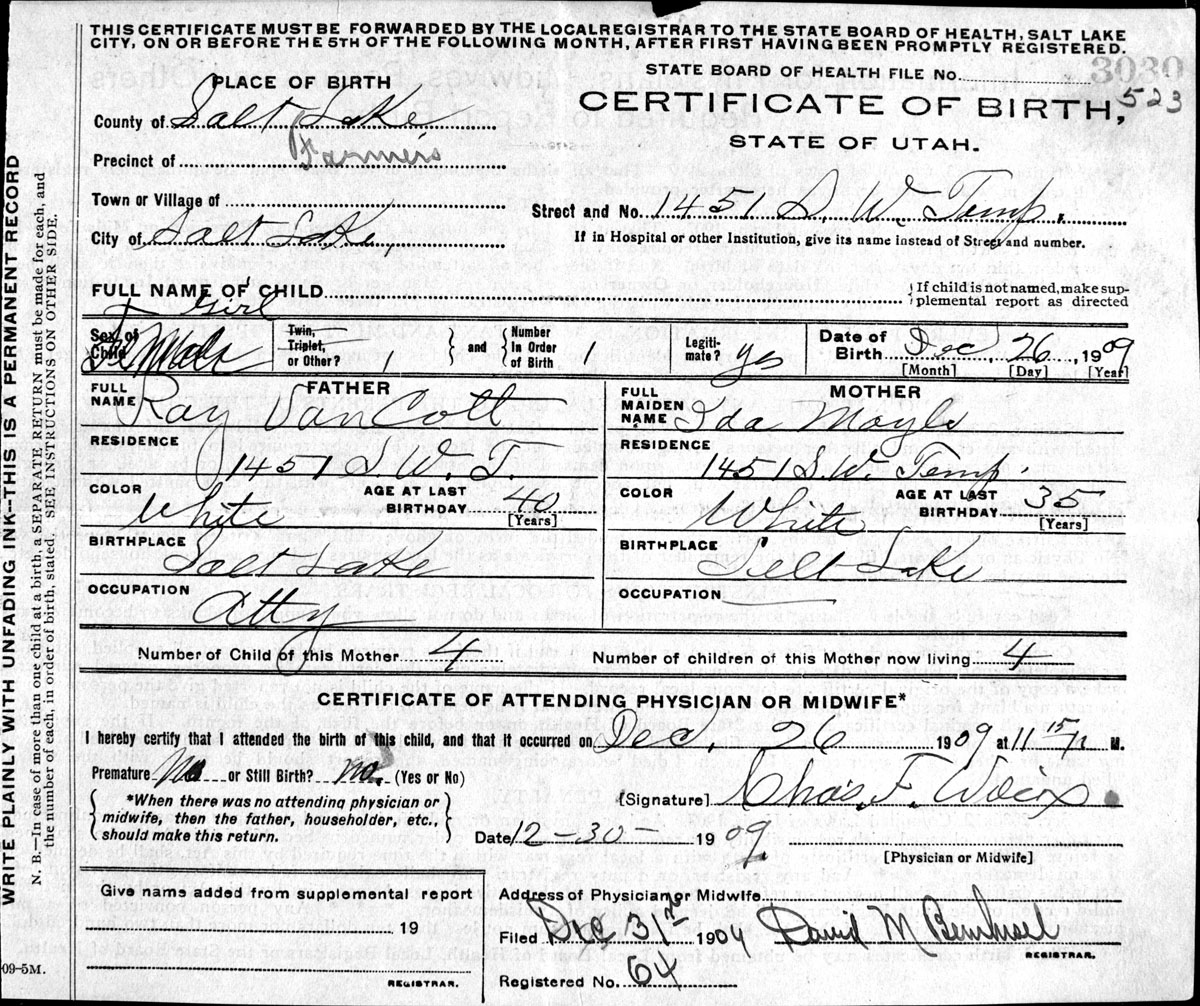 THIS CERTIFICATE MUST BE FORWARDED BY THE LOCALREGISTRAR TO THE STATE BOARD OF HEALTH, SALT LAKE
CITY, ON OR BEFORE THE 5TH OF THE FOLLOWING MONTH, AFTER FIRST HAVING BEEN PROMPTLY REGISTERED.
STATE BOARD OF HEALTH FILE No. 3030
523
PLACE OF BIRTH
CERTIFICATE OF BIRTH,
STATE OF UTAH.
County of Salt Lake
Precinct of Farmers
Town or Village of
Street and No. 1451 S. W. Temp.
City of Salt Lake,
If in Hospital or other Institution, give its name instead of Street and number.
FULL NAME OF CHILD Girl
If child is not named, make sup-
plemental report as directed
Sex of Child Female
Twin, Triplet, or Other?
and
Number In Order of Birth 1
Legiti-mate? yes
Date of Birth Dec. 26, 1909
[Month] [Day] [Year]
FATHER
FULL NAME Ray VanCott
MOTHER
FULL MAIDEN NAME Ida Moyle
RESIDENCE 1451 S W. T.
RESIDENCE 1451 S. W. Temp.
COLOR White
AGE AT LAST BIRTHDAY 40 [Years]
COLOR White
AGE AT LAST BIRTHDAY 35 [Years]
BIRTHPLACE Salt Lake
BIRTHPLACE Salt Lake
OCCUPATION Atty
OCCUPATION
Number of Child of this Mother 4
Number of children of this Mother now living 4
CERTIFICATE OF ATTENDING PHYSICIAN OR MIDWIFE*
I hereby certify that I attended the birth of this child, and that it occurred on Dec. 26 1909 at 11 15 M.
Premature No or Still Birth? no. (Yes or No)
*When there was no attending physician or
midwife, then the father, householder, etc.,
should make this return.
[Signature] Chas. F. Wilcox
Date 12-30- 1909
[Physician or Midwife]
Give name added from supplemental report
19
REGISTRAR.
Address of Physician or Midwife
Filed Dec 31 1909 David M Bernhisel
REGISTRAR.
Registered No. 64
09-5M.
WRITE PLAINLY WITH UNFADING INK--THIS IS A PERMANENT RECORD
N. B.--In case of more than one child at a birth, a SEPARATE RETURN must be made for each, and
the number of each, in order of birth, stated. SEE INSTRUCTIONS ON OTHER SIDE.